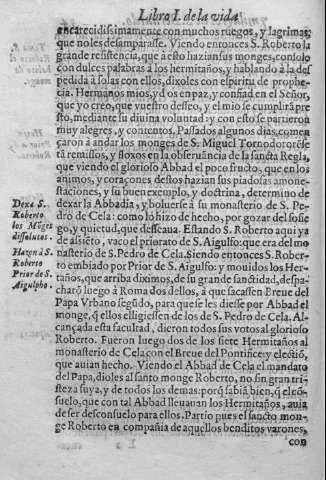 Libro I. de la vida
encarecidissimamente con muchos ruegos, y lagrimas,
que no les desamparasse. Viendo entonces S. Roberto la
grande resistencia, que à esto hazian sus monges, consolo
con dulces palabras à los hermitaños, y hablando à la des
pedida à solas con ellos, dixoles con espiritu de prophe
cia. Hermanos mios, yd os en paz, y confiad en el Señor,
que yo creo, que vuestro desseo, y el mio se cumplirà pre
sto, mediante su diuina voluntad: y con esto se partieron
muy alegres, y contentos. Passados algunos dias, comen
çaron à andar los monges de S. Miguel Tornodororése
tã remissos, y floxos en la obseruãncia de la sancta Regla,
que viendo el glorioso Abbad el poco fructo, que en los
animos, y coraçones destos hazian sus piadosas amone-
staciones, y su buen exemplo, y doctrina, determino de
dexar la Abbadia, y boluerse à su monasterio de S. Pe-
dro de Cela: como lo hizo de hecho, por gozar del sosie
go, y quietud, que desseaua. Estando S. Roberto aqui ya
de assieto, vaco el priorato de S. Aigulfo: que era del mo
nasterio de S. Pedro de Cela. Siendo entonces S. Rober-
to embiado por Prior de S. Aigulfo: y mouidos los Her-
taños, que arriba diximos, de su grande sanctidad, despa-
charõ luego à Roma dos dellos, à que sacassen Breue del
Papa Vrbano segũdo, para que se les diesse por Abbad el
monge, q̃ ellos elligiessen de los de S. Pedro de Cela. Al-
cançada esta facultad, dieron todos sus votos al glorioso
Roberto. Fueron luego dos de los siete Hermitaños al
monasterio de Cela con el Breue del Pontifice: y electiõ,
que auian hecho. Viendo el Abbad de Cela el mandato
del Papa, dioles al santo monge Roberto, no sin gran tris
teza suya, y de todos los demas: porq̃ sabiã bien, q̃ el cõ-
suelo, que con tal Abbad lleuauan los Hermitaños, auia
de ser desconsuelo para ellos. Partio pues el sancto mon-
ge Roberto en compañia de aquellos benditos varones,
con
Dexa S.
Roberto
los Mõges
dissolutos.
Hazen à S.
Roberto
Prior de S.
Aigulpho.